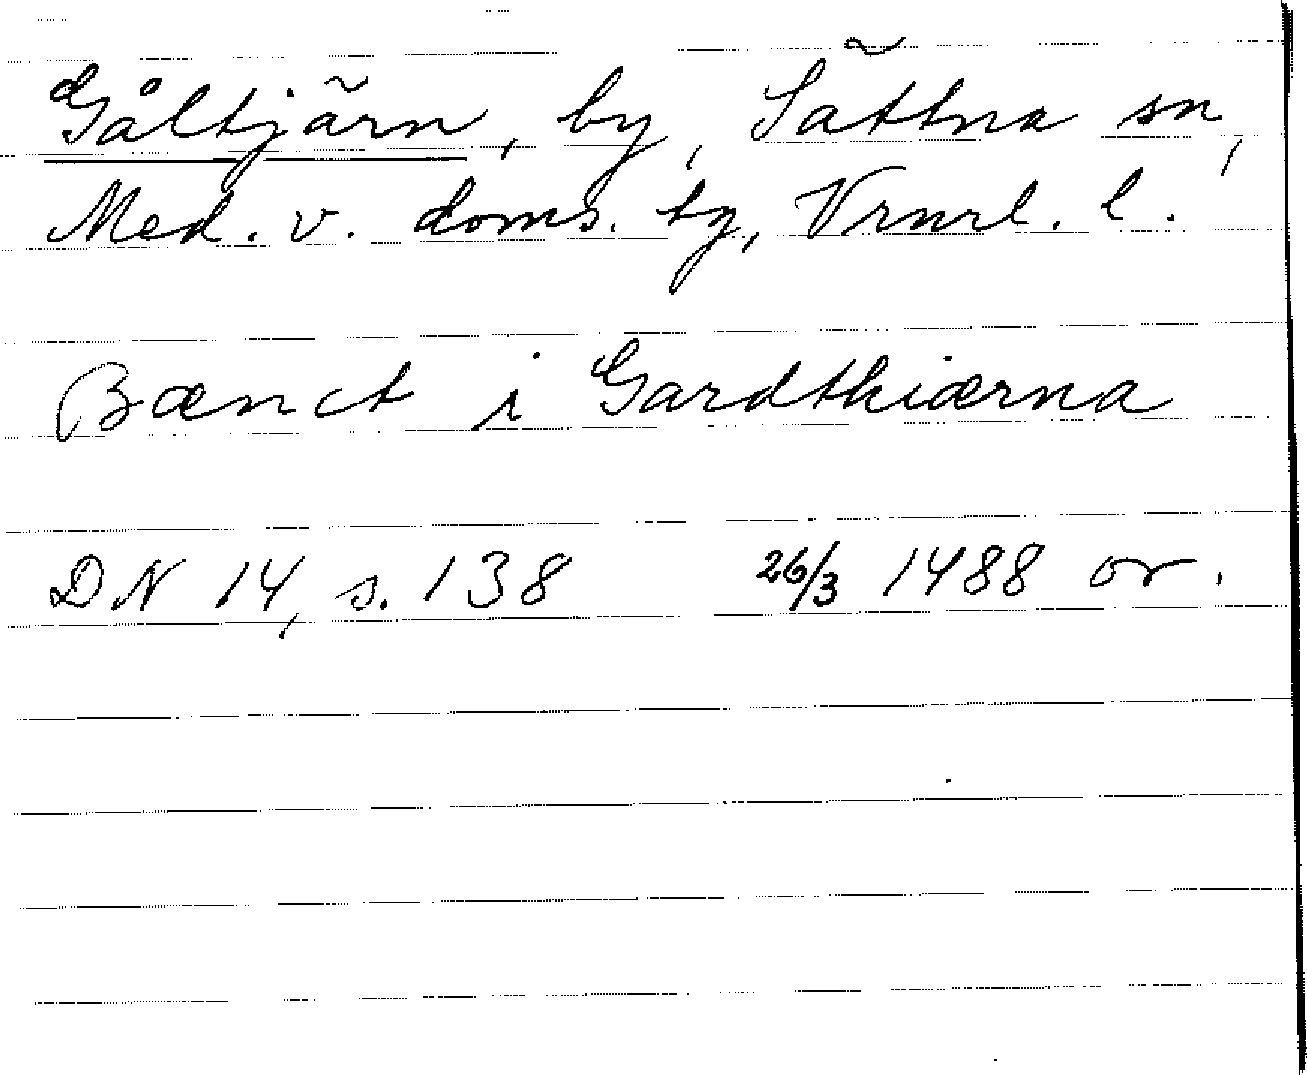 Gåltjärn, by, Sättna sn,
Med. v. doms. tg, Vrnrl. l.
Bænct i Gardthiærna
DN 14, s. 138 26/3 1488 or.